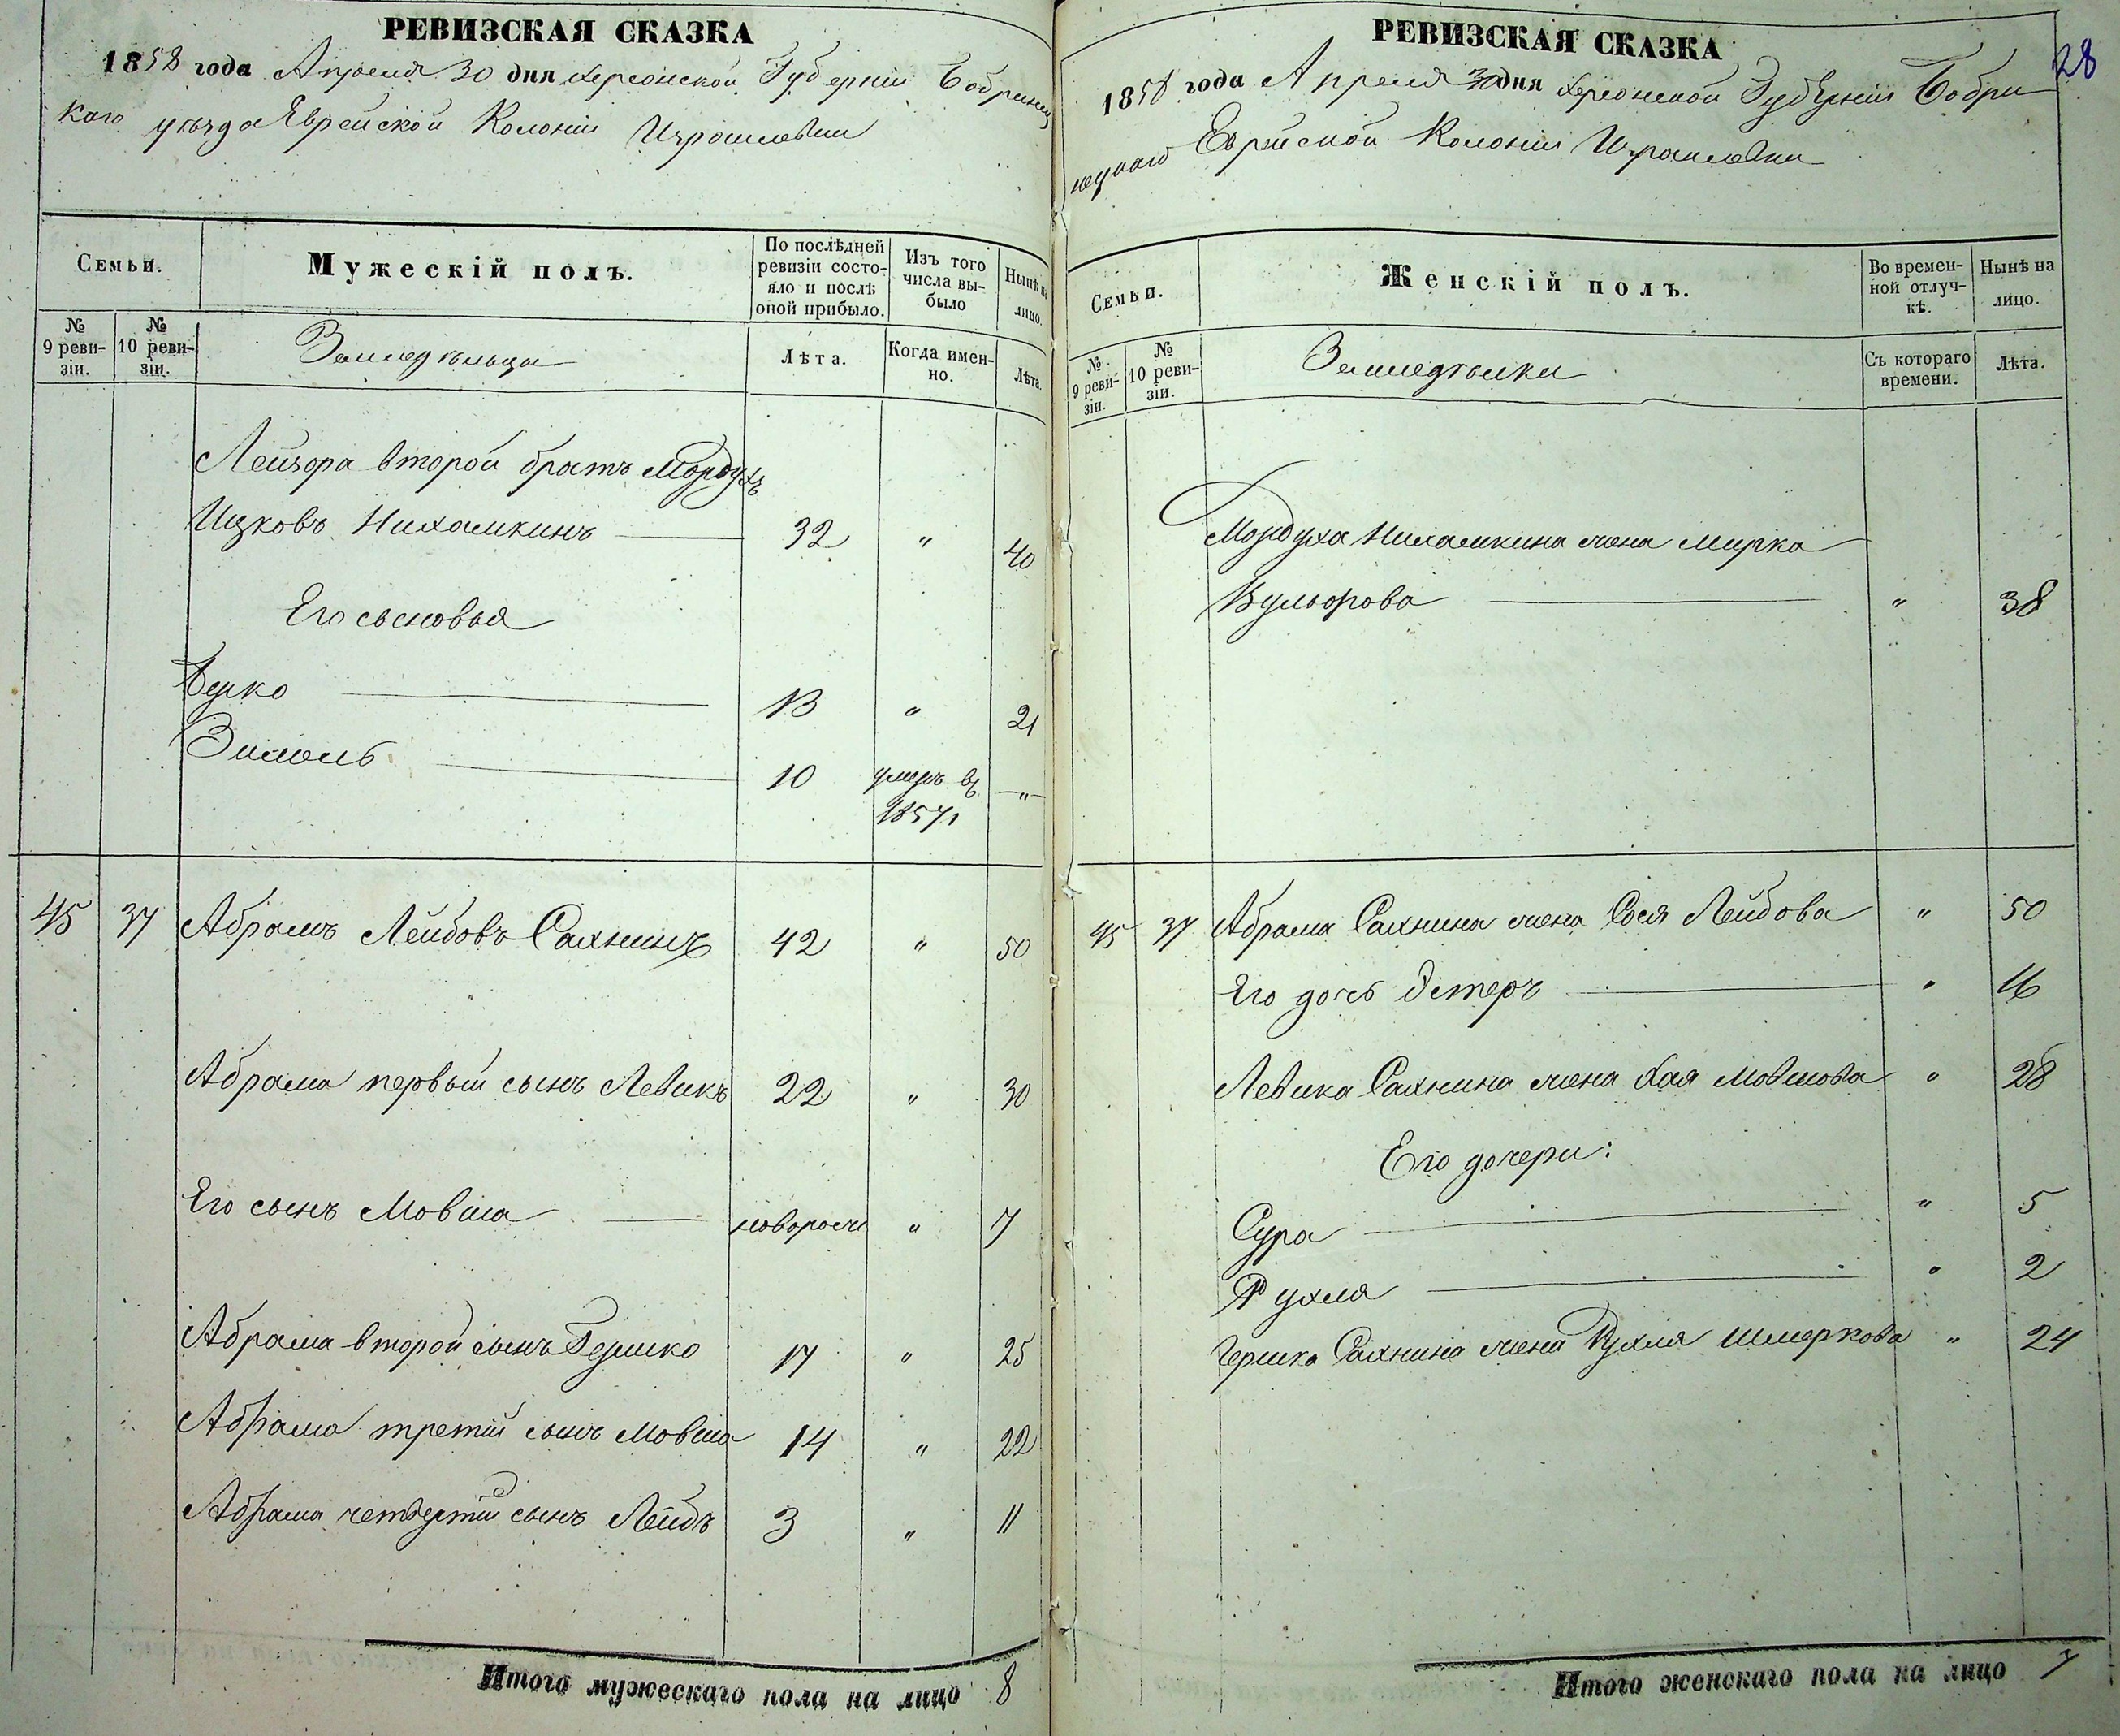 РЕВИЗСКАЯ СКАЗКА
1858 года Апреля 30 дня Херсонской Губерніи Бобринец
каго уѣзда Еврейской Колоніи Израилевки
Семьи.
Мужескій полъ.
По послѣдней ревизіи состояло и послѣ оной прибыло.
Изъ того числа выбыло
Нынѣ на лицо.
№ 9 ревизіи.
№ 10 ревизіи.
Земледѣльцы
Лѣта.
Когда именно.
Лѣта.
Лейзора второй братъ Мордухъ
Ицковъ Нихамкинъ 32 " 40
Его сыновья
Берко 13 " 21
Зимель 10 умеръ въ 1857 — " —
45 37 Абрамъ Лейбовъ Сахнинъ 42 " 50
Абрама первый сынъ Левикъ 22 " 30
Его сынъ Мовша новорожд " 7
Абрама второй сынъ Гершко 17 " 25
Абрама третій сынъ Мовша 14 " 22
Абрама четвертый сынъ Лейбъ 3 " 11
Итого мужескаго пола на лицо 8
28
РЕВИЗСКАЯ СКАЗКА
1858 года Апреля 30 дня Херсонской Губерніи Бобри
нецкаго Еврейской Колоніи Израилевки
Семьи.
Женскій полъ.
Во временной отлучкѣ.
Нынѣ на лицо.
№ 9 ревизіи.
№ 10 ревизіи.
Земледѣлки
Съ котораго времени.
Лѣта.
Мордуха Нихамкина жена Мирка
Вульфова " 38
45 37 Абрама Сахнина жена Сося Лейбова " 50
Его дочь Эстеръ " 16
Левика Сахнина жена Хая Мовшова " 28
Его дочери:
Сура " 5
Рухля " 2
Гершка Сахнина жена Рухля Шмеркова " 24
Итого женскаго пола на лицо 7